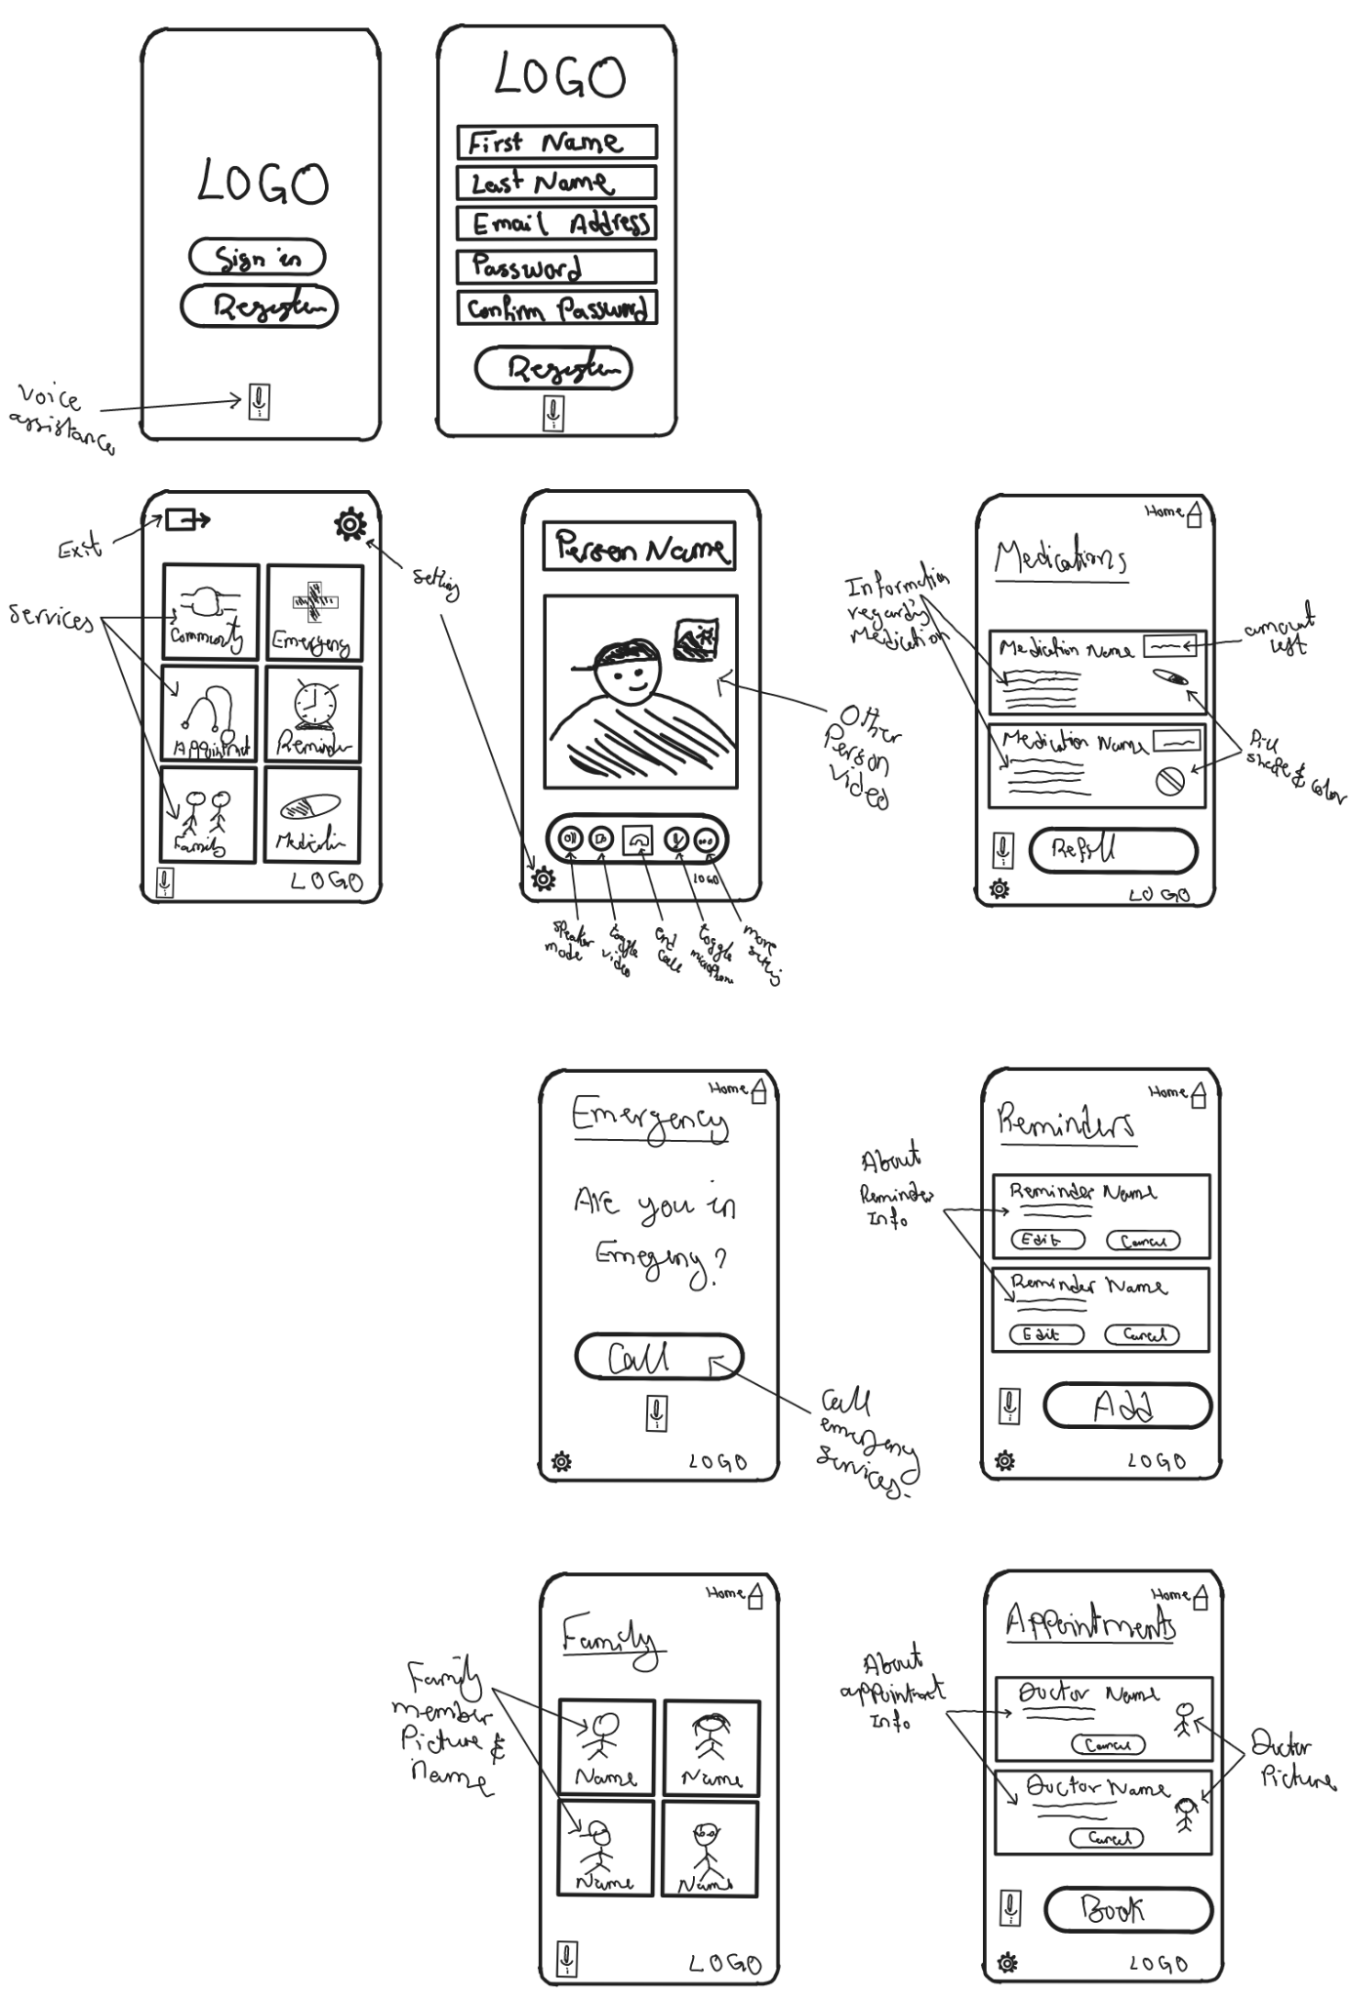 LOGO
Sign in
Register
Voice
assistance
LOGO
First Name
Last Name
Email Address
Password
Confirm Password
Register
Exit
Services
Setting
Community
Emergency
Appointmet
Reminder
Family
LOGO
Person Name
LOGO
Other
Person
Video
speaker
mode
toggle
video
end
call
toggle
more
setting
Home
Medications
Information
regarding
Medication
Medication Name
amount
left
Medication Name
Pill
shape & color
Refill
LOGO
Home
Emergency
Are you in
Call
LOGO
Call
emergency
services.
Home
Reminders
About
Reminder
Info
Reminder Name
Edit
Cancel
Reminder Name
Edit
Cancel
Add
LOGO
Home
Family
Family
member
Picture &
Name
Name
Name
Name
Name
LOGO
Home
Appointments
About
appointmet
Info
Doctor Name
Cancel
Doctor Name
Cancel
Doctor
Picture
Book
LOGO